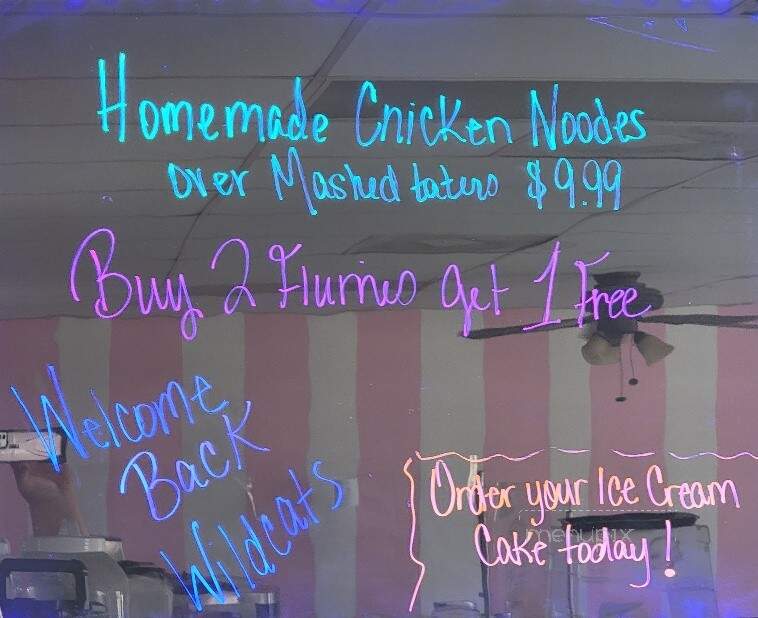 Homemade Chicken Noodes
over Mashed taters $9.99
Buy 2 Flurries get 1 Free
Welcome
Back
Wildcats
Order your Ice Cream
Cake today!
menupix